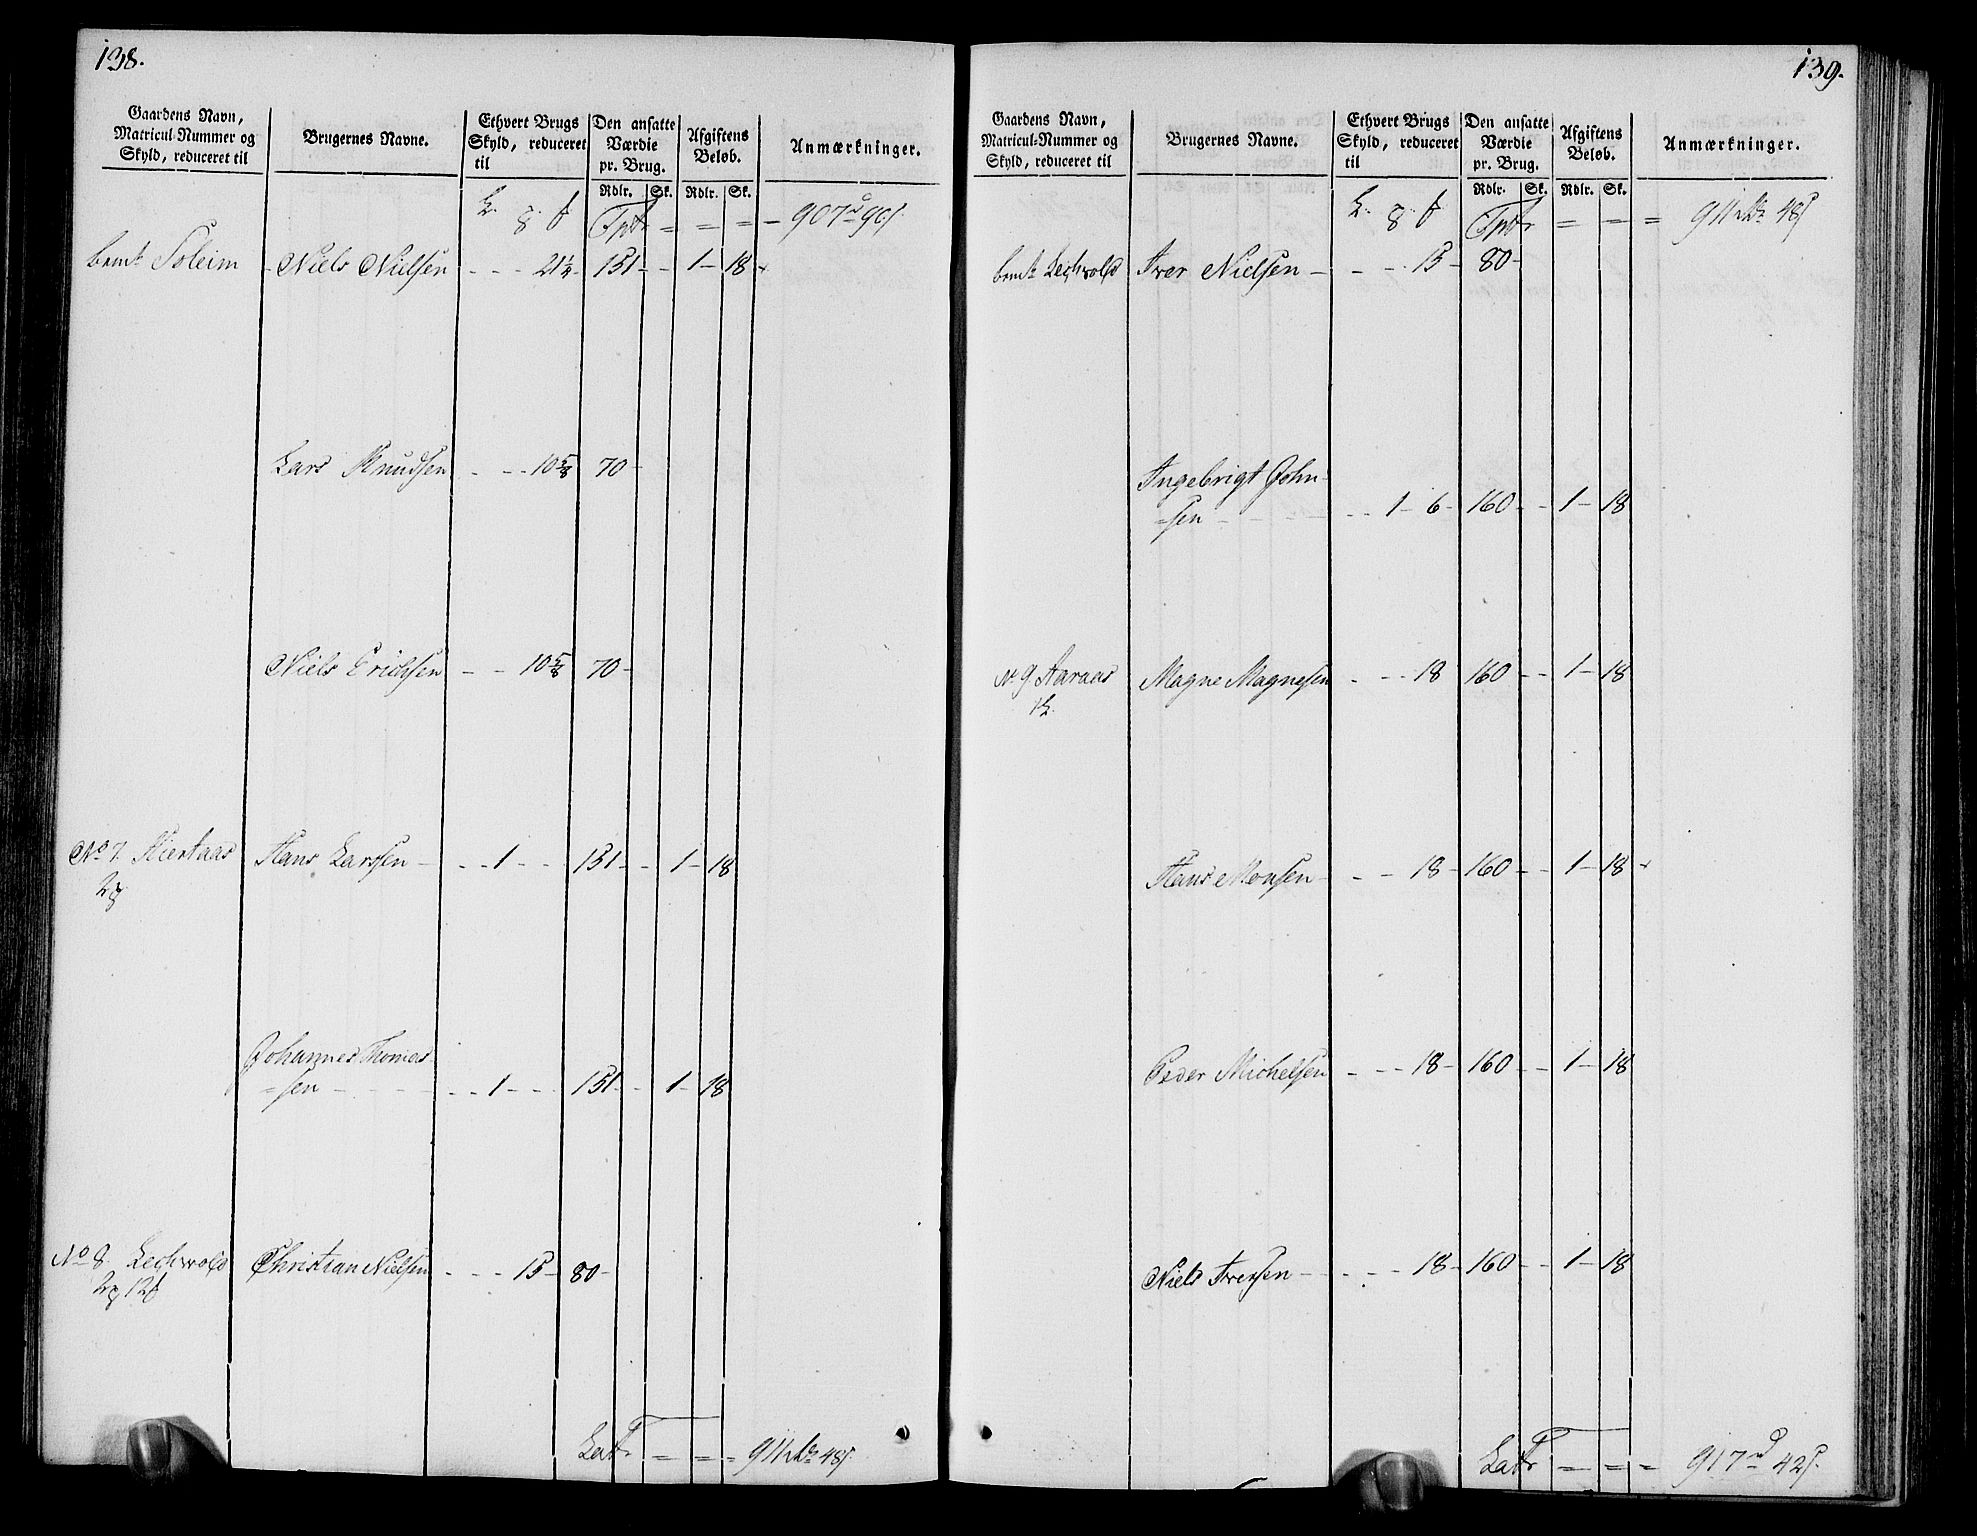 138.
Gaardens Navn, Matricul-Nummer og Skyld, reduceret til | Brugernes Navne. | Ethvert Brugs Skyld, reduceret til | Den ansatte Værdie pr. Brug. | Afgiftens Beløb. | Anmærkninger.
Rdlr. Sk. Rdlr. Sk.
Tptr = = = 907 90
bemt Soleim Niels Nielsen - - - 21¼ 151 - - 1 - 18
Lars Knudsen - - - 10⅝ 70 -
Niels Erichsen - - 10⅝ 70 -
No 7. Kiertaas Hans Larsen - - - 1 - - 151 - - 1 - 18
2
Johannes Thomes
=sen - - - - - 1 - - - 151 - - 1 - 18
No 8. Lechwold Christian Nielsen - - - 15 - 80 -
2 12
Latr = = = 911 48
139.
Gaardens Navn, Matricul-Nummer og Skyld, reduceret til | Brugernes Navne. | Ethvert Brugs Skyld, reduceret til | Den ansatte Værdie pr. Brug. | Afgiftens Beløb. | Anmærkninger.
Rdlr. Sk. Rdlr. Sk.
Tptr = = = 911 48
bemt Lechwold Iver Nielsen - - - 15 - 80 -
Ingebrigt John-
=sen - - - - - - 1 - 6 - 160 - - 1 - 18
N 9 Aaraas Magne Magnesen - - - 18 160 - - 1 - 18
1
Hans Monsen - - - 18 - 160 - - 1 - 18
Peder Michelsen - - - 18 - 160 - - 1 - 18
Niels Iversen - - - - 18 - 160 - - 1 - 18
Latr = = = 917 42